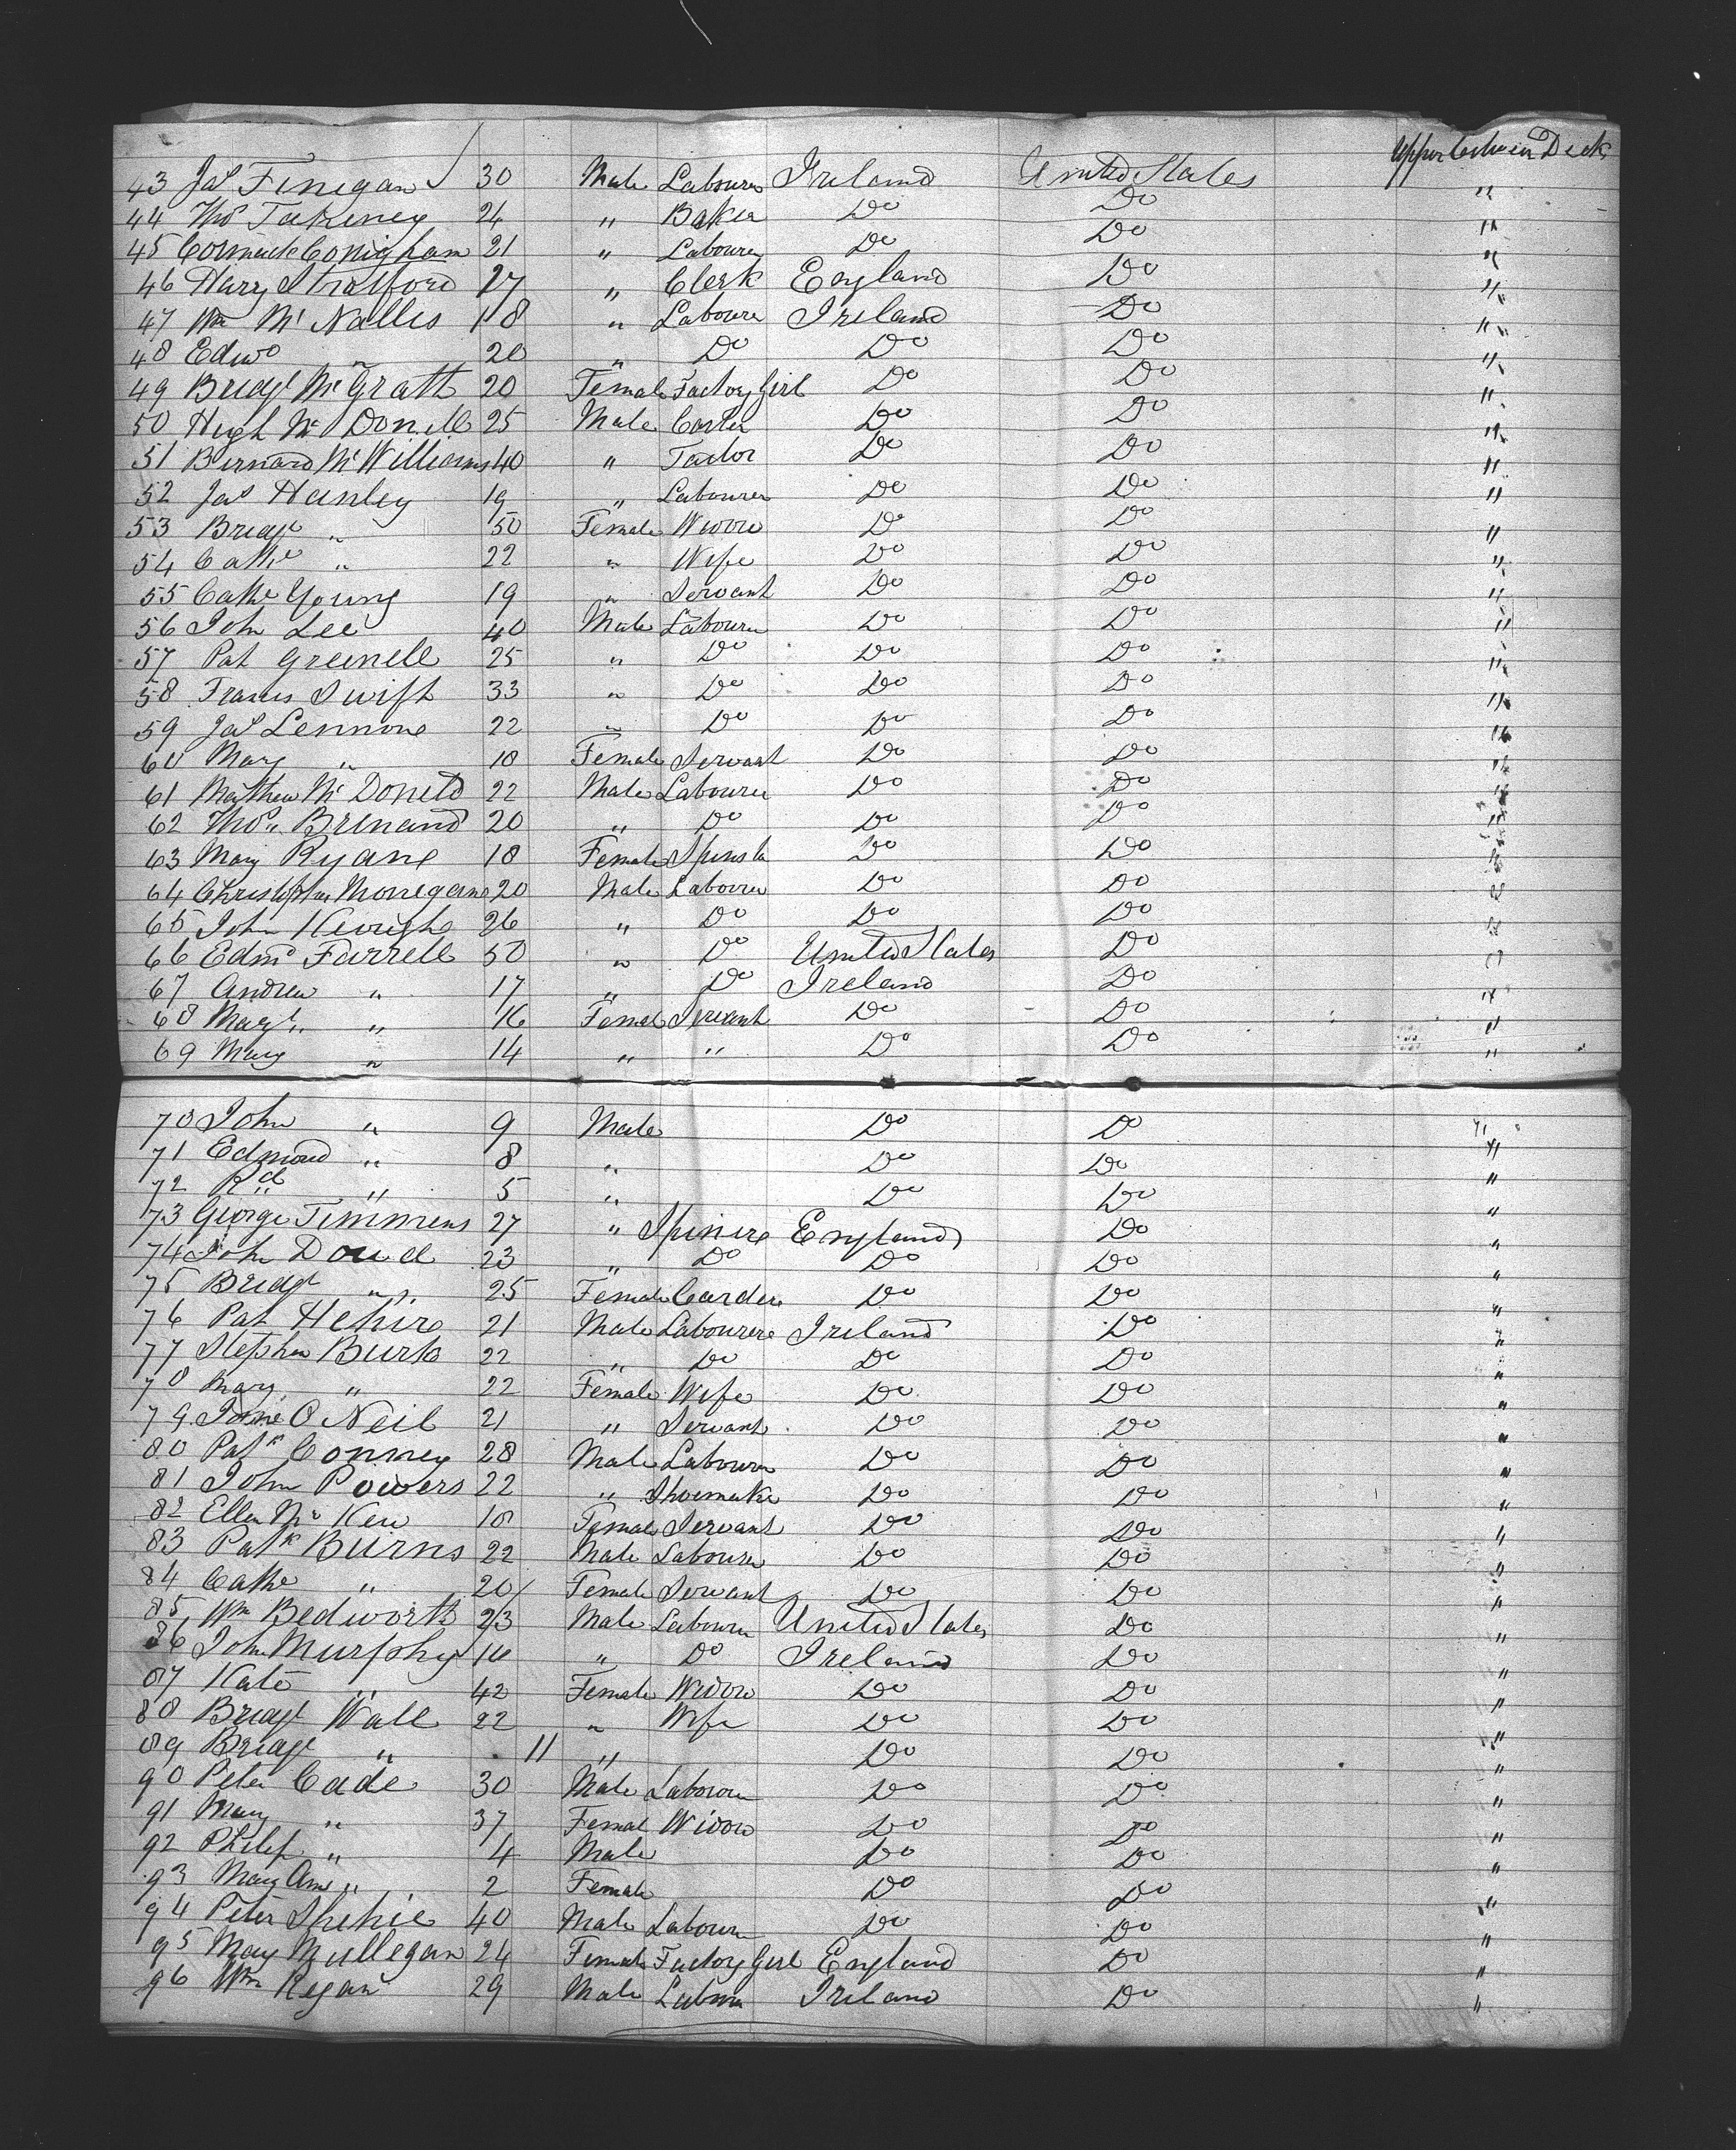 Upper Between Deck
43 Jas Finegan 30 Male Labourer Ireland United States
44 Thos Takeney 24 " Baker Do Do "
45 Cormack Conigham 21 " Labourer Do Do "
46 Hary Stratford 27 " Clerk England Do "
47 Wm Mc Nallis 18 " Laboure Ireland Do "
48 Edwd " 20 " Do Do Do "
49 Bridgt Mc Grath 20 Female Factory Girl Do Do "
50 Hugh Mc Donell 25 Male Carter Do Do "
51 Bernard Mc Williams 40 " Tailor Do Do "
52 Jas Hanley 19 " Labourer Do Do "
53 Bridgt " 50 Female Widow Do Do "
54 Cathe " 22 " Wife Do Do "
55 Cathe Young 19 " Servant Do Do "
56 John Lee 40 Male Labourer Do Do "
57 Pat Greinell 25 " Do Do Do "
58 Francis Swift 33 " Do Do Do "
59 Jas Lennone 22 " Do Do Do "
60 Mary " 18 Female Servant Do Do "
61 Mathew Mc Doneld 22 Male Labourer Do Do "
62 Thos Brenand 20 " Do Do Do "
63 Mary Ryane 18 Female Spinster Do Do "
64 Christopher Monegane 20 Male Labourer Do Do "
65 John Keough 26 " Do Do Do "
66 Edmd Farrell 50 " Do United States Do "
67 Andrew " 17 " Do Ireland Do "
68 Margt " 16 Female Servant Do Do "
69 Mary " 14 " " Do Do "
70 John " 9 Male Do Do "
71 Edmond " 8 " Do Do "
72 Rd " 5 " Do Do "
73 George Timmins 27 " Spinere England Do "
74 John Doud 23 " Do Do Do "
75 Bridgt " 25 Female Carder Do Do "
76 Pat Hehire 21 Male Labourere Ireland Do "
77 Stephen Burk 22 " Do Do Do "
78 Mary " 22 Female Wife Do Do "
79 Jane O Neil 21 " Servant Do Do "
80 Patk Conney 28 Male Labourer Do Do "
81 John Powers 22 " Shoemaker Do Do "
82 Ellen Mc Kew 18 Female Servant Do Do "
83 Patk Burns 22 Male Labourer Do Do "
84 Cathe " 20 Female Servant Do Do "
85 Wm Bedworth 23 Male Labourer United States Do "
86 John Murphy 16 " Do Ireland Do "
87 Kate " 42 Female Widow Do Do "
88 Bridgt Wall 22 " Wife Do Do "
89 Bridgt " 11 " Do Do "
90 Peter Cade 30 Male Labourer Do Do "
91 Mary " 37 Female Widow Do Do "
92 Philip " 4 Male Do Do "
93 Mary Ann " 2 Female Do Do "
94 Peter Shehie 40 Male Labourer Do Do "
95 Mary Mullegan 24 Female Factory Girl England Do "
96 Wm Regan 29 Male Labourer Ireland Do "